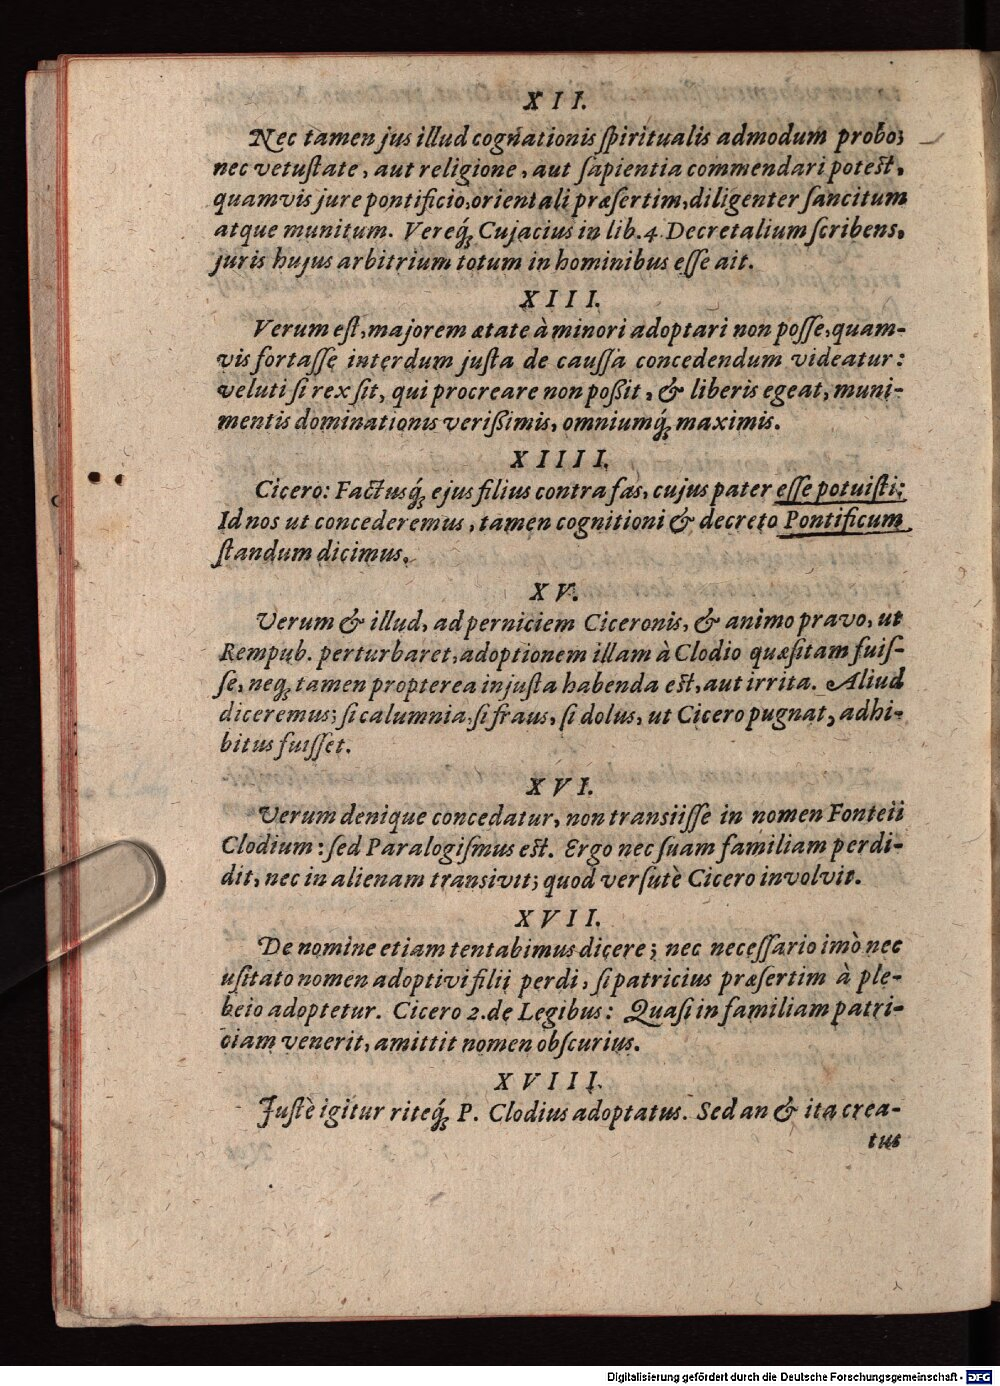 XII.
Nec tamen jus illud cognationis spiritualis admodum probo;
nec vetustate, aut religione, aut sapientia commendari potest,
quamvis jure pontificio, orientali præsertim, diligenter sancitum
atque munitum. Vereq́; Cujacius in lib. 4. Decretalium scribens,
juris hujus arbitrium totum in hominibus esse ait.
XIII.
Verum est, majorem ætate à minori adoptari non posse, quam-
vis fortasse interdum justa de caussa concedendum videatur:
veluti si rex sit, qui procreare non poßit, & liberis egeat, muni-
mentis dominationis verißimis, omniumq́; maximis.
XIIII.
Cicero: Factusq́; ejus filius contra fas, cujus pater esse potuisti:
Id nos ut concederemus, tamen cognitioni & decreto Pontificum
standum dicimus.
XV.
Verum & illud, ad perniciem Ciceronis, & animo pravo, ut
Rempub. perturbaret, adoptionem illam à Clodio quæsitam fuis-
se, neq; tamen propterea injusta habenda est, aut irrita. Aliud
diceremus; si calumnia, si fraus, si dolus, ut Cicero pugnat, adhi-
bitus fuisset.
XVI.
Verum denique concedatur, non transiisse in nomen Fonteii
Clodium: sed Paralogismus est. Ergo nec suam familiam perdi-
dit, nec in alienam transivit; quod versutè Cicero involvit.
XVII.
De nomine etiam tentabimus dicere; nec necessario imò nec
usitato nomen adoptivi filii perdi, si patricius præsertim à ple-
beio adoptetur. Cicero 2. de Legibus: Quasi in familiam patri-
ciam venerit, amittit nomen obscurius.
XVIII.
Justè igitur riteq́; P. Clodius adoptatus. Sed an & ita crea-
tus
Digitalisierung gefördert durch die Deutsche Forschungsgemeinschaft - DFG